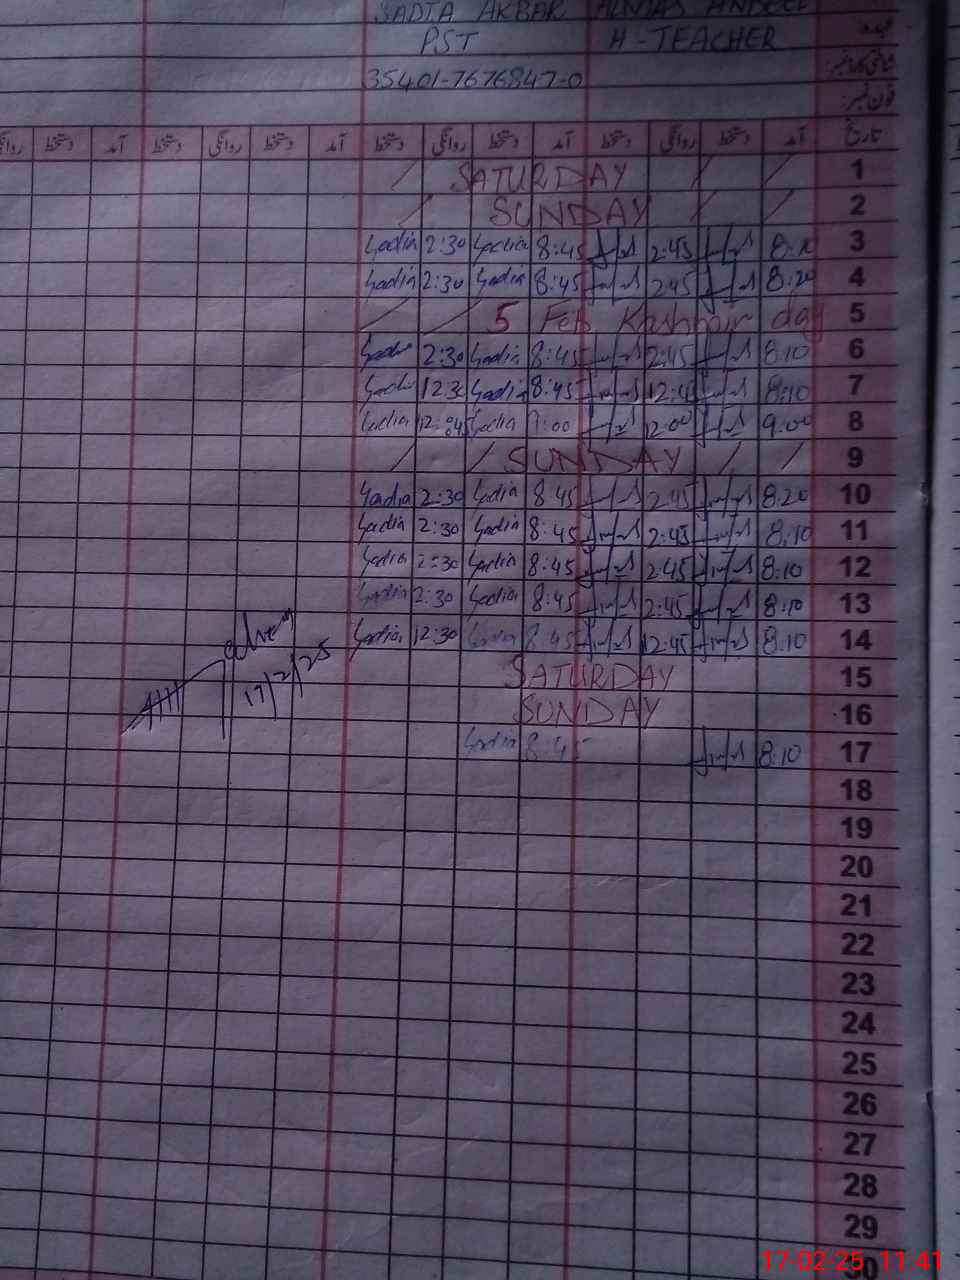 SADIA AKBAR
PST H-TEACHER عہدہ
35401-7676847-0 شناختی کارڈ نمبر:
فون نمبر:
تاریخ آمد دستخط روانگی دستخط آمد دستخط روانگی دستخط آمد دستخط روانگی دستخط آمد دستخط روانگی
SATURDAY 1
SUNDAY 2
Sadia 2:30 Sadia 8:45 2:45 8:10 3
Sadia 2:30 Sadia 8:45 2:45 8:20 4
5 Feb Kashmir day 5
2:30 Sadia 8:45 2:45 8:10 6
Sadia 12:30 Sadia 8:45 12:45 8:10 7
Sadia Sadia 9:00 12:00 9:00 8
SUNDAY 9
Sadia 2:30 Sadia 8:45 2:45 8:20 10
Sadia 2:30 Sadia 8:45 2:45 8:10 11
Sadia 2:30 Sadia 8:45 2:45 8:10 12
Sadia 2:30 Sadia 8:45 2:45 8:10 13
Sadia 12:30 Sadia 8:45 12:45 8:10 14
17/2/25
SATURDAY 15
SUNDAY 16
Sadia 8:45 8:10 17
18
19
20
21
22
23
24
25
26
27
28
29
17-02-25 11:41